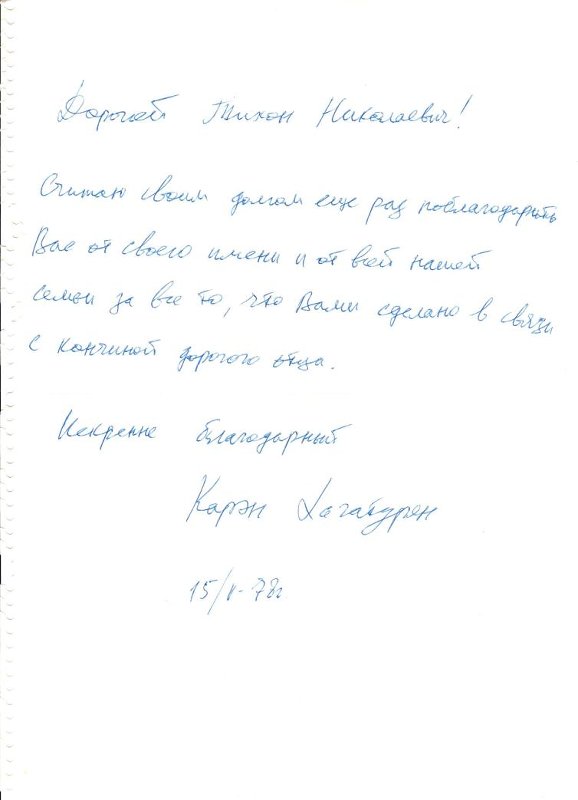 Дорогой Тихон Николаевич!
Считаю своим долгом еще раз поблагодарить
Вас от своего имени и от всей нашей
семьи за все то, что Вами сделано в связи
с кончиной дорогого отца.
Искренне благодарный
Карэн Хачатурян
15/V-78г